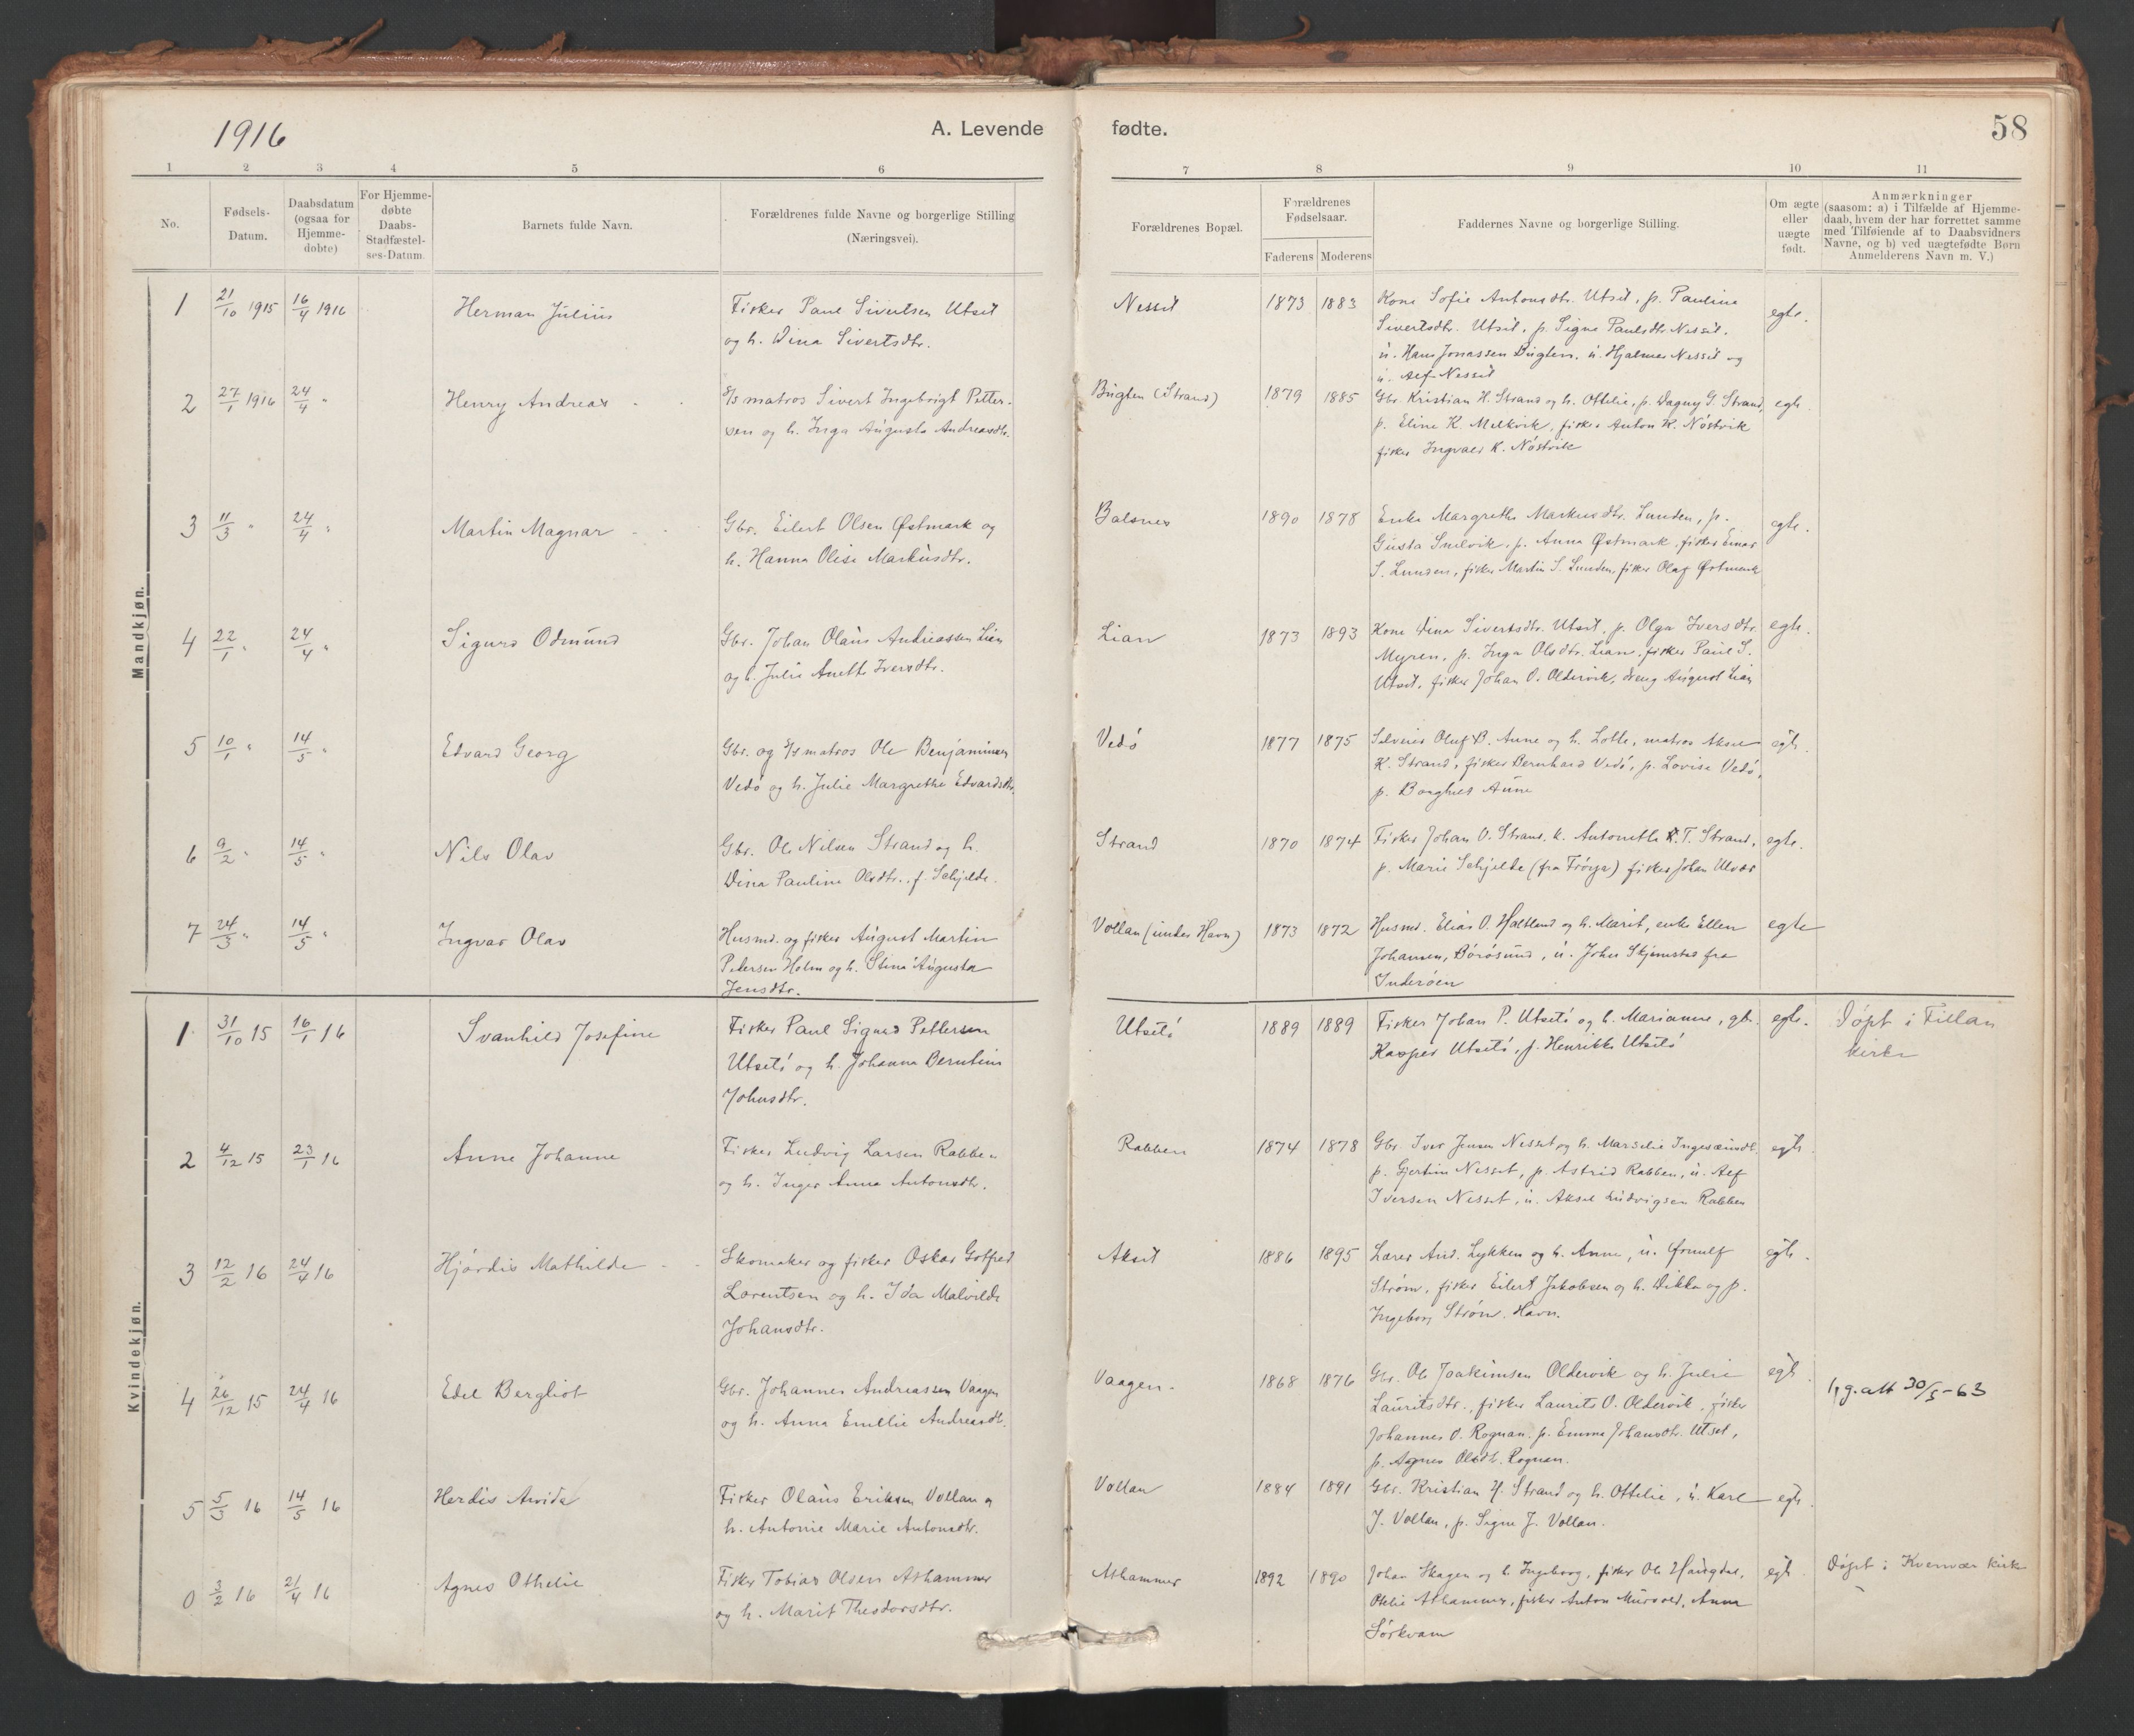 1916
A. Levende
fødte.
58
1 2 3 4 5 6 7 8 9 10 11
No.
Fødsels-
Datum.
Daabsdatum
(ogsaa for
Hjemme-
døbte)
For Hjemme-
døbte
Daabs-
Stadfæstel-
ses-Datum.
Barnets fulde Navn.
Forældrenes fulde Navne og borgerlige Stilling
(Næringsvei).
Forældrenes Bopæl.
Forældrenes
Fødselsaar.
Faderens Moderens
Faddernes Navne og borgerlige Stilling.
Om ægte
eller
uægte
født.
Anmærkninger
(saasom: a) i Tilfælde af Hjemme-
daab, hvem der har forrettet samme
med Tilføiende af to Daabsvidners
Navne, og b) ved uægtefødte Børn
Anmelderens Navn m. V.)
Mandkjøn.
1 21/10 1915 16/4 1916 Herman Julius
Fisker Paul Sivertsen Utset
og h. Dina Sivertsdtr.
Nesset 1873 1883
Kone Sofie Antonsdtr. Utset, p. Pauline
Sivertsdtr. Utset, p. Signe Paulsdtr. Nesset,
u. Hans Jonassen Bugten, u. Hjalmar Nesset og
u. Alf Nesset
egte.
2 27/1 1916 24/4 " Henry Andreas
S/S matros Sivert Ingebrigt Petter-
sen og h. Inga Augusta Andreasdtr.
Bugten (Strand) 1879 1885
Gbr. Kristian H. Strand og h. Ottilie, p. Dagny G. Strand,
p. Eline K. Melkvik, fisker Anton K. Nøstvik
fisker Ingvald K. Nøstvik
egte.
3 11/3 " 24/4 " Martin Magnar
Gbr. Eilert Olsen Østmark og
h. Hanna Olise Markusdtr.
Balsnes 1890 1878
Enke Margrethe Markusdtr. Lunden, p.
Gusta Snelvik, p. Anna Østmark, fisker Einar
S. Lunden, fisker Martin S. Lunden, fisker Olaf Østmark
egte.
4 22/1 " 24/4 " Sigurd Odmund
Gbr. Johan Olaus Andreassen Lian
og h. Julie Anette Iversdtr.
Lian 1873 1893
Kone Dina Sivertsdtr. Utset, p. Olga Iversdtr.
Myren, p. Inga Olsdtr. Lian, fisker Paul S.
Utset, fisker Johan O. Oldervik, dreng August Lian
egte.
5 10/1 " 14/5 " Edvard Georg
Gbr. og S/S matros Ole Benjaminsen
Vedø og h. Julie Margrethe Edvardsdtr.
Vedø 1877 1875
Oluf B. Aune og h. Lotte, matros Aksel
K. Strand, fisker Bernhard Vedø, p. Lovise Vedø,
p. Borghild Aune
egte.
6 9/2 " 14/5 " Nils Olav
Gbr. Ole Nilsen Strand og h.
Dina Pauline Olsdtr. f. Schjelde.
Strand 1870 1874
Fisker Johan O. Strand, k. Antonette K. T. Strand,
p. Marie Schjelde (fra Frøya) fisker Johan Ulvær
egte.
7 24/3 " 14/5 " Ingvar Olav
Husmd. og fisker August Martin
Pedersen Holm og h. Stina Augusta
Jensdtr.
Vollan (under Havn) 1873 1872
Husmd. Elias O. Haltland og h. Marit, enke Ellen
Johansen, Børøsund, u. John Skjemstad fra
Inderøen
egte
Kvindekjøn.
1 31/10 15 16/1 16 Svanhild Josefine
Fisker Paul Sigurd Pettersen
Utsetø og h. Johanna Berntine
Johnsdtr.
Utsetø 1889 1889
Fisker Johan P. Utsetø og h. Marianne, gbr.
Kasper Utsetø, p. Henrikke Utsetø
egte.
Døpt i Fillan
kirke
2 4/12 15 23/1 16 Anne Johanne
Fisker Ludvig Larsen Rabben
og h. Inger Anna Antonsdtr.
Rabben 1874 1878
Gbr. Iver Jensen Nesset og h. Marselie
p. Gjertine Nesset, p. Astrid Rabben, u. Alf
Iversen Nesset, u. Aksel Ludvigsen Rabben
egte.
3 12/2 16 24/4 16 Hjørdis Mathilde
Skomaker og fisker Oskar Gotfred
Lorentsen og h. Ida Malvilde
Johansdtr.
Akset 1886 1895
Lærer And. Lykken og h. Anne, u. Ørnulf
Strøm, fisker Eilert Jakobsen og h. Dikka og p.
Ingeborg Strøm, Havn.
egte.
4 26/12 15 24/4 16 Edel Bergliot
Gbr. Johannes Andreassen Vaagen
og h. Anna Emelie Andreasdtr.
Vaagen. 1868 1876
Gbr. Ole Joakimsen Oldervik og h. Julie
Lauritsdtr., fisker Laurits O. Oldervik, fisker
Johannes O. Rognan, p. Emma Johansdtr. Utset,
p. Agnes Olsdtr. Rognan.
egte.
lg. att 30/5-63
5 5/3 16 14/5 16 Herdis Arvida
Fisker Olaus Eriksen Vollan og
h. Antonie Marie Antonsdtr.
Vollan 1884 1891
Gbr. Kristian H. Strand og h. Ottilie, u. Karl
J. Vollan, p. Signe J. Vollan.
egte.
0 3/2 16 21/4 16 Agnes Othelie
Fisker Tobias Olsen Ashammer
og h. Marit Theodorsdtr.
Ashammer 1892 1890
Johan Skagen og h. Ingeborg, fisker Ole Haugdal,
Otelie Ashammer, fisker Anton Murvold, Anna
Sørkvam
egte.
Døpt i Kvenvær kirke